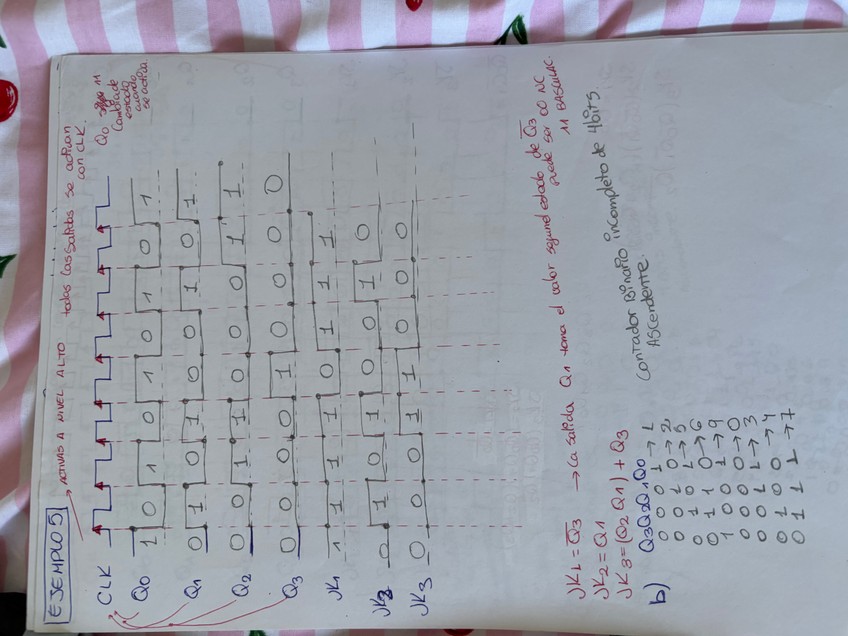 EJEMPLO 5
→ ACTIVAS A NIVEL ALTO
todas las salidas se activan
con CLK.
Q0 11
Cambia de
estado
cuando
se activa.
CLK
Q0 1 0 1 0 1 0 1 0 1
Q1 0 1 0 1 0 0 1 0 1
Q2 0 0 1 1 0 0 0 1 1
Q3 0 0 0 0 1 0 0 0 0
JK1 1 1 1 1 0 1 1 1
JK2 0 1 0 1 0 0 1 0
JK3 0 0 0 1 1 0 0 0
JK1 = Q̅3 → La salida Q1 toma el valor segun estado de Q̅3
puede ser 00 NC
11 BASCULAC.
JK2 = Q1
JK3 = (Q2 Q1) + Q3
b) Q3Q2Q1Q0
0 0 0 1 → 1
0 0 1 0 → 2
0 1 0 1 → 5
0 1 1 0 → 6
1 0 0 1 → 9
0 0 0 0 → 0
0 0 1 1 → 3
0 1 0 0 → 4
0 1 1 1 → 7
Contador Binario incompleto de 4bits
Ascendente.